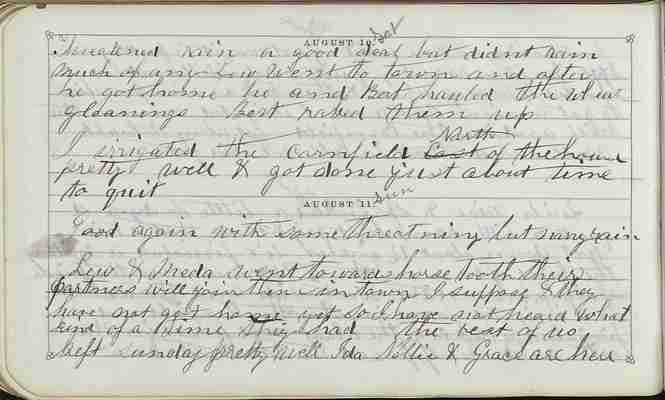 AUGUST 10. Sat
Threatened rain a good deal but didnt rain
much of any Lew went to town and after
he got home he and Bert hauled the wheat
gleanings Bert raked them up
North
I irrigated the cornfield East of the house
pretty well & got done just about time
to quit
AUGUST 11. Sun
Good again with some threatning but nary rain
Lew & Meda went toward horse Tooth their
partners will join them in town I suppose & they
have not got home yet so I have not heard what
kind of a time they had the best of us
left Sunday pretty well Ida Nollie & Grace are here